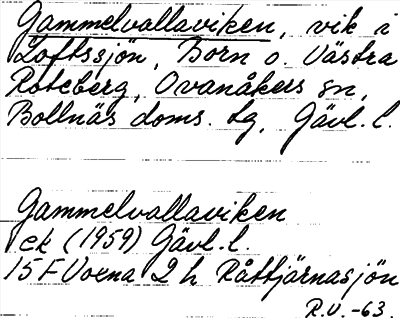 Gammelvallaviken, vik i
Loftssjön, Born o. Västra
Roteberg, Ovanåkers sn,
Bollnäs doms. tg, Gävl. l.
Gammelvallaviken
ek (1959) Gävl. l.
15 F Voxna 2 h Råttjärnasjön
R.U. -63.